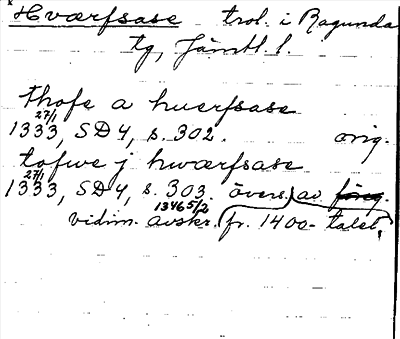 Hværfsase trol. i Ragunda
tg, Jämtl. l.
thofe a huerfsase
1333 27/1, SD 4, s. 302. orig.
tofwe j hwærfsase
1333 27/1, SD 4, s. 303. övers. av föreg.
vidim. avskr. 1346 5/2 fr. 1400-talet